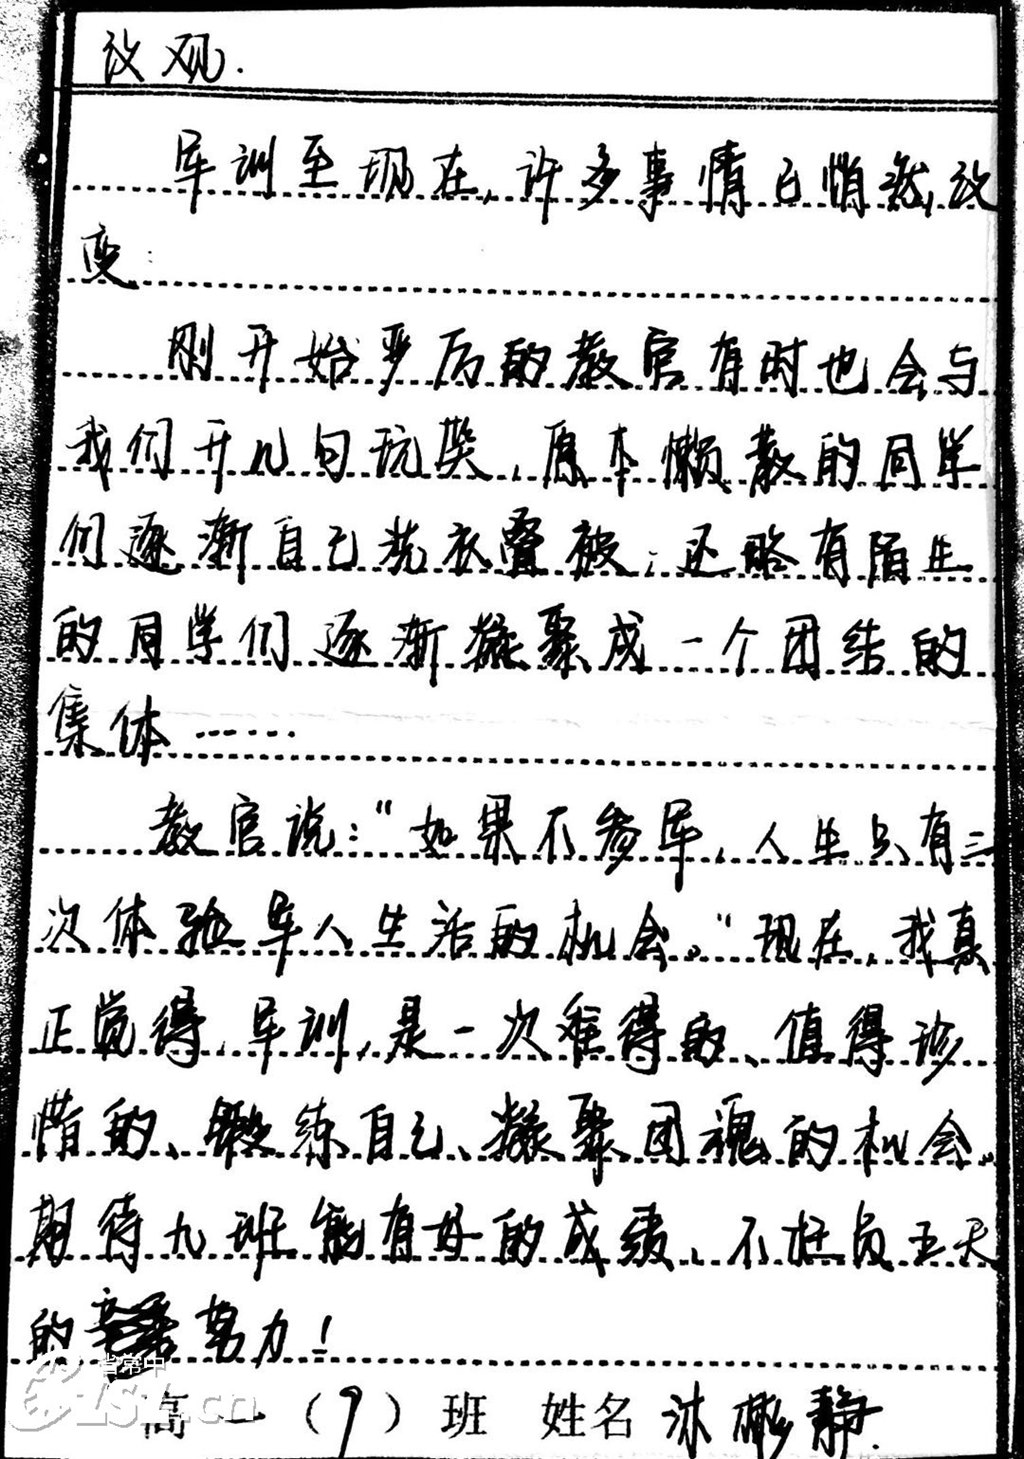 改观.
军训至现在,许多事情已悄然改
变:
刚开始严厉的教官有时也会与
我们开几句玩笑,原本懒散的同学
们逐渐自己洗衣叠被;还略有陌生
的同学们逐渐凝聚成一个团结的
集体……
教官说:“如果不参军,人生只有三
次体验军人生活的机会。”现在,我真
正觉得,军训,是一次难得的、值得珍
惜的、锻练自己、凝聚团魂的机会。
期待九班能有好的成绩、不枉负五天
的努力!
省常中
高一(9)班 姓名 沐彬静.